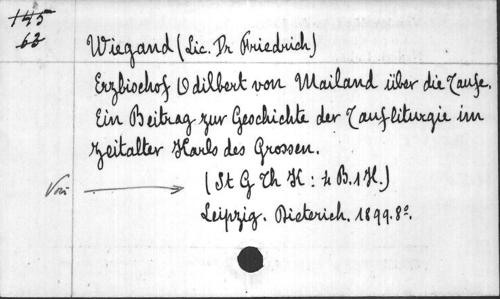 145
63
Wiegand (Lic. Dr Friedrich)
Erzbischof Odilbert von Mailand über die Taufe.
Ein Beitrag zur Geschichte der Taufliturgie im
Zeitalter Karls des Grossen.
Voir → (St G Th K : 4 B. 1 H.)
Leipzig. Dieterich. 1899. 8º.